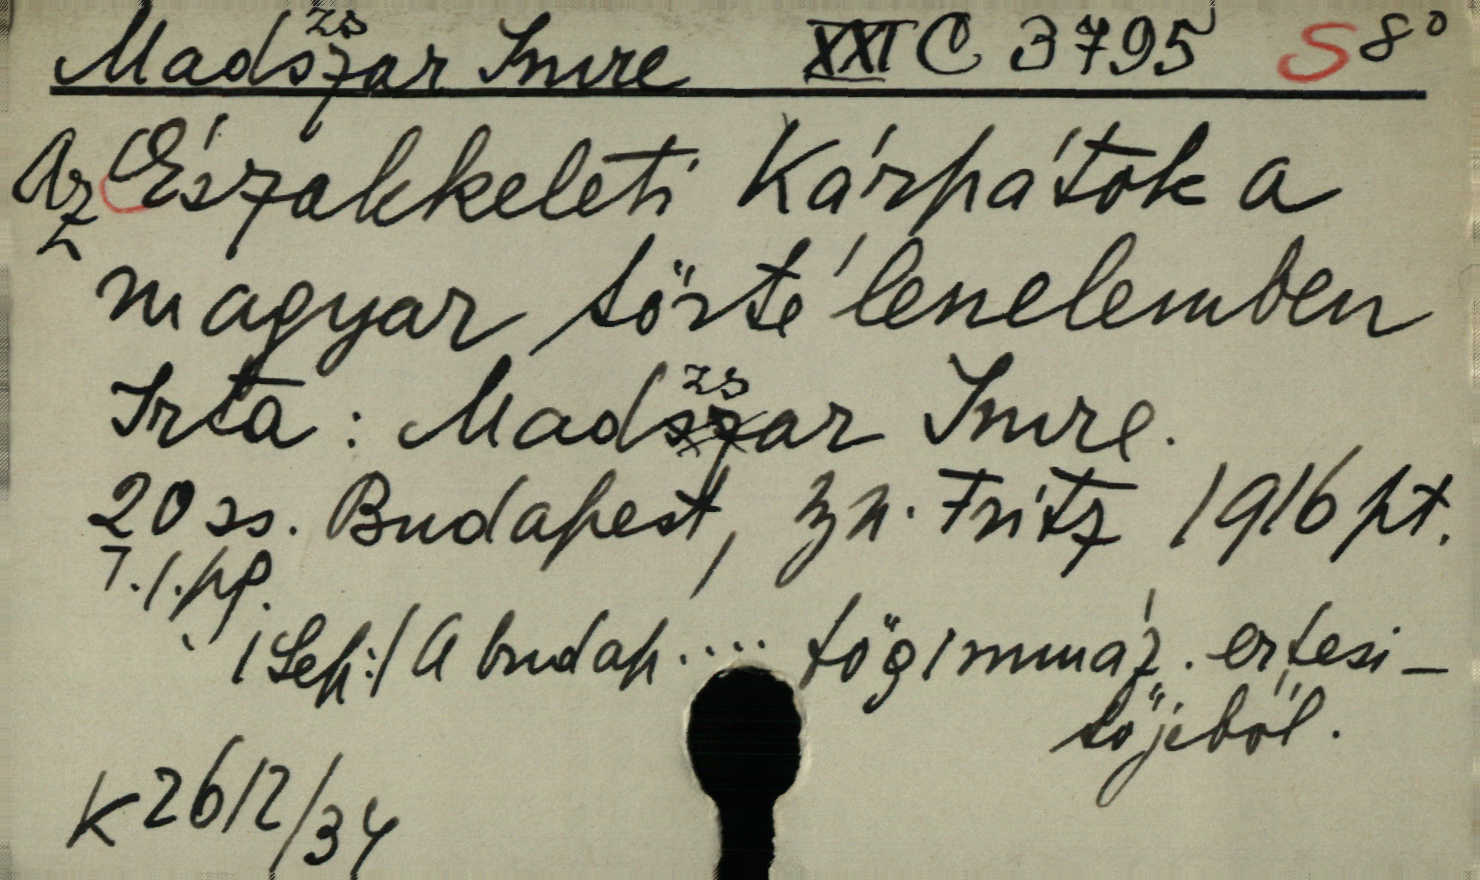 Madszar Imre XXI C 3795 S 8°
zs
Az Északkeleti Kárpátok a
magyar törté lenelemben
Irta: Madszar Imre.
zs
20 ss. Budapest, Fritz 1916 pt.
/Sep:/ A budap .... főgimnáz. ertesi-
tőjéből.
K 2612/34